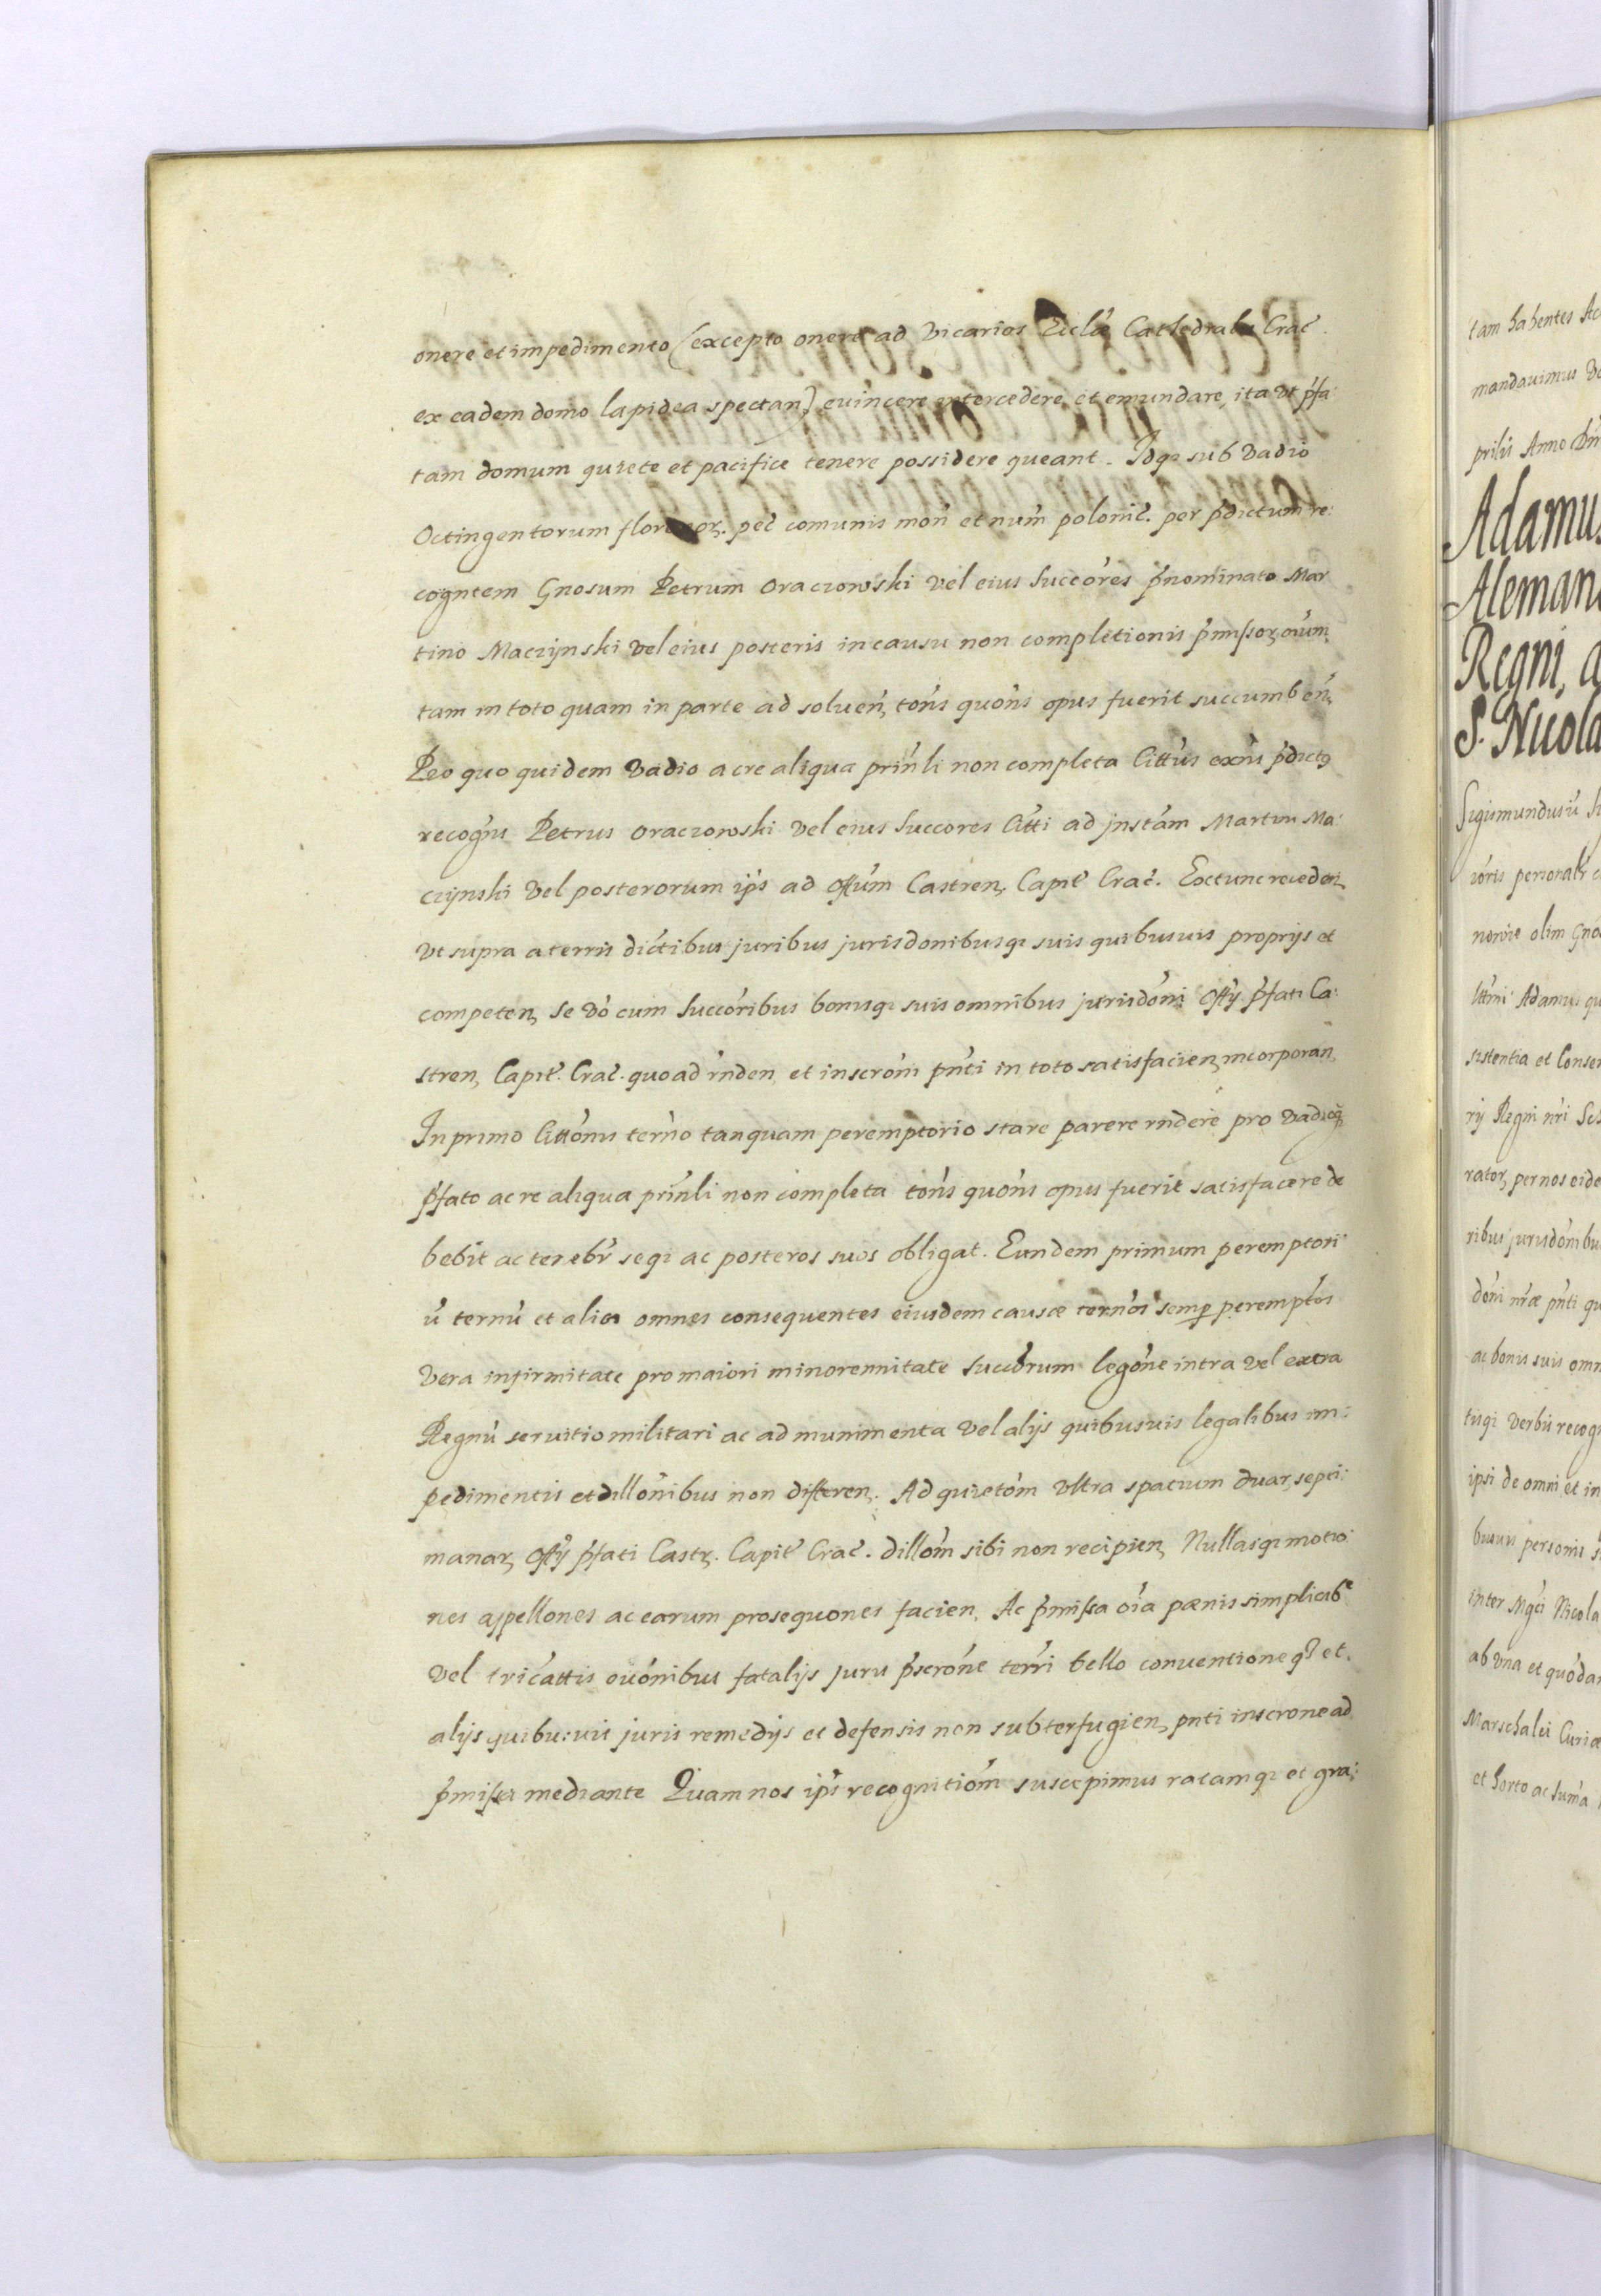 onere et impedimento (excepto onere ad Vicarios Ecclæ Cathedralis Crac̃.
ex eadem domo lapidea spectan.) euincere intercedere et emundare, ita vt p̃fa:
tam domum quiete et pacifice tenere possidere queant. Idq₃ sub Vadio
Octingentorum floreñor. pec̃ comunis moñ et num̃ polonic̃. per p̃dictum re:
cogntem Gnosum Petrum Oraczowski vel eius Succõres p̃nominato Mar
tino Maczÿnski vel eius posteris in causu non completionis p̃missor, oium
tam in toto quam in parte ad soluen̄, tõns quõns opus fuerit succumben̄,
Pro quo quidem Vadio ac re aliqua prinl̃i non completa Citt̃us exñs p̃dictꝯ
recogñs Petrus Oraczowski vel eius Succores Citt̃i ad jnstam̃ Martini Ma:
czÿnski Vel posterorum ip̃s ad Offũm Castren, Capit̃ Crac̃. Extunc receden,
vt supra a terris dictibus juribus jurisdonibusq₃ suis quibusuis proprijs et
competen, se v̆o cum Succõribus bonisq₃ suis omnibus jurisdõni Offÿ p̃fati Ca:
stren, Capit̃. Crac̃. quo ad rñden, et inscrõni pñti in toto satisfacien, incorporan,
In primo Cittõnis terño tanquam peremptorio stare parere rndere pro Vadioq₃
p̃fato ac re aliqua prinl̃i non completa tõns quõns opus fuerit satisfacere de
bebit ac tenebr̃ seq₃ ac posteros suos obligat. Eundem primum peremptori
ũ ternũ et alios omnes consequentes eiusdem causæ ternõs semp peremptõs
Vera infirmitate pro maiori minorennitate Succõrum legõne intra vel extra
Regnũ seruitio militari ac ad munimenta Vel alijs quibusuis legalibus im:
pedimentis et dillõnibus non differen. Ad quietõm vltra spatium duar, septi:
manar, Offÿ p̃fati Castr. Capit̃ Crac̃. dillõm sibi non recipien, Nullasq₃ motio:
nes appellones ac earum prosequones facien, Ac p̃missa oĩa pænis simplicib₉
Vel tricattis ouõnibus fatalijs juris p̃scrõne terr̃i bello conuentioneq₃ et
alijs quibusuis juris remedijs et defensis non subterfugien, pnti inscrone ad
p̃missa mediante Quam nos ip̃s recognitiõm suscepimus ratamq₃ et gra:
tam habentes Ac
mandauimus
prilis Anno Dñ
Adamus
Alemani
Regni, a
S. Nicola
Sigismundus
nomie olim Gno
Adamus qu
sistentia et Consen
rij Regni nr̃i
rator, per nos eide
ribus jurisdõnibu
dõni nr̃æ pñti qu
ac bonis suis omn
tisq₃ Verbis recog
ipsi de omni et in
busuis personis
inter Mgc̃i Nicola
ab Vna et quõdam
Marschalci Curiæ
et horto ac Suma